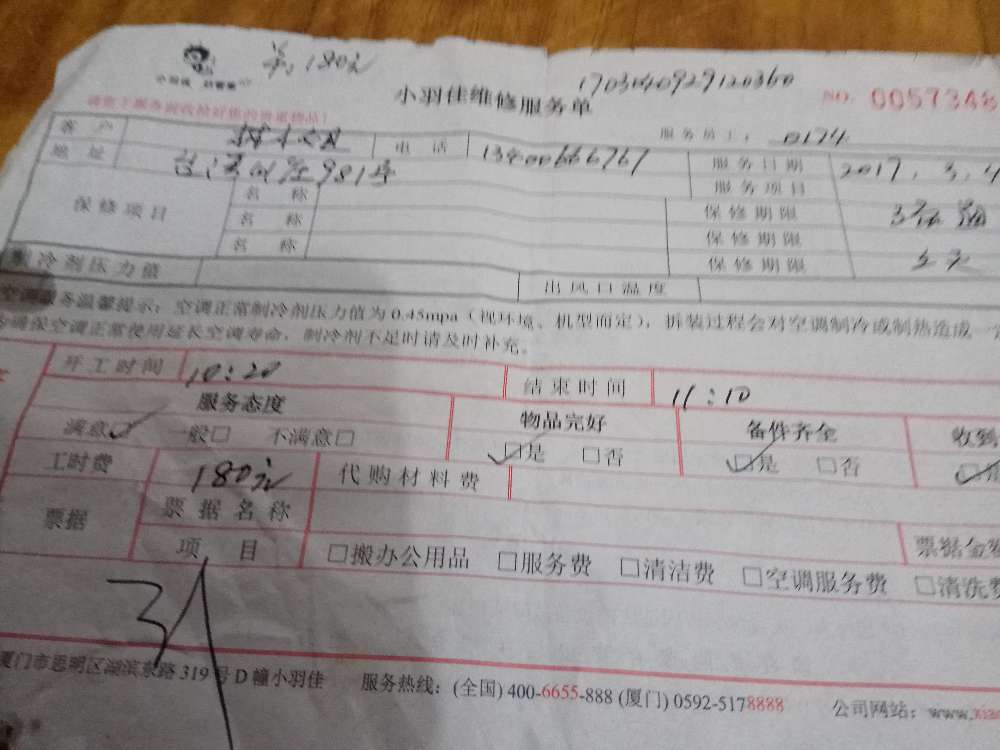 180元
1703040929120360
小羽佳维修服务单
NO. 0057348
请您于服务前收拾好您的贵重物品!
服务员工: 0174
客户 电话 13400666767 服务日期 2017.3.4
地址 981号 服务项目
保修项目 名称 保修期限
名称 保修期限
名称 保修期限
制冷剂压力值 出风口温度
空调服务温馨提示:空调正常制冷剂压力值为0.45mpa(视环境、机型而定),拆装过程会对空调制冷或制热造成一
为确保空调正常使用延长空调寿命,制冷剂不足时请及时补充。
开工时间 10:20 结束时间 11:10
服务态度 物品完好 备件齐全 收到
满意☑ 一般□ 不满意□ ☑是 □否 ☑是 □否
工时费 180元 代购材料费
票据 票据名称 票据金
项目 □搬办公用品 □服务费 □清洁费 □空调服务费 □清洗费
厦门市思明区湖滨东路319号D幢小羽佳 服务热线:(全国)400-6655-888 (厦门)0592-5178888 公司网站:www.